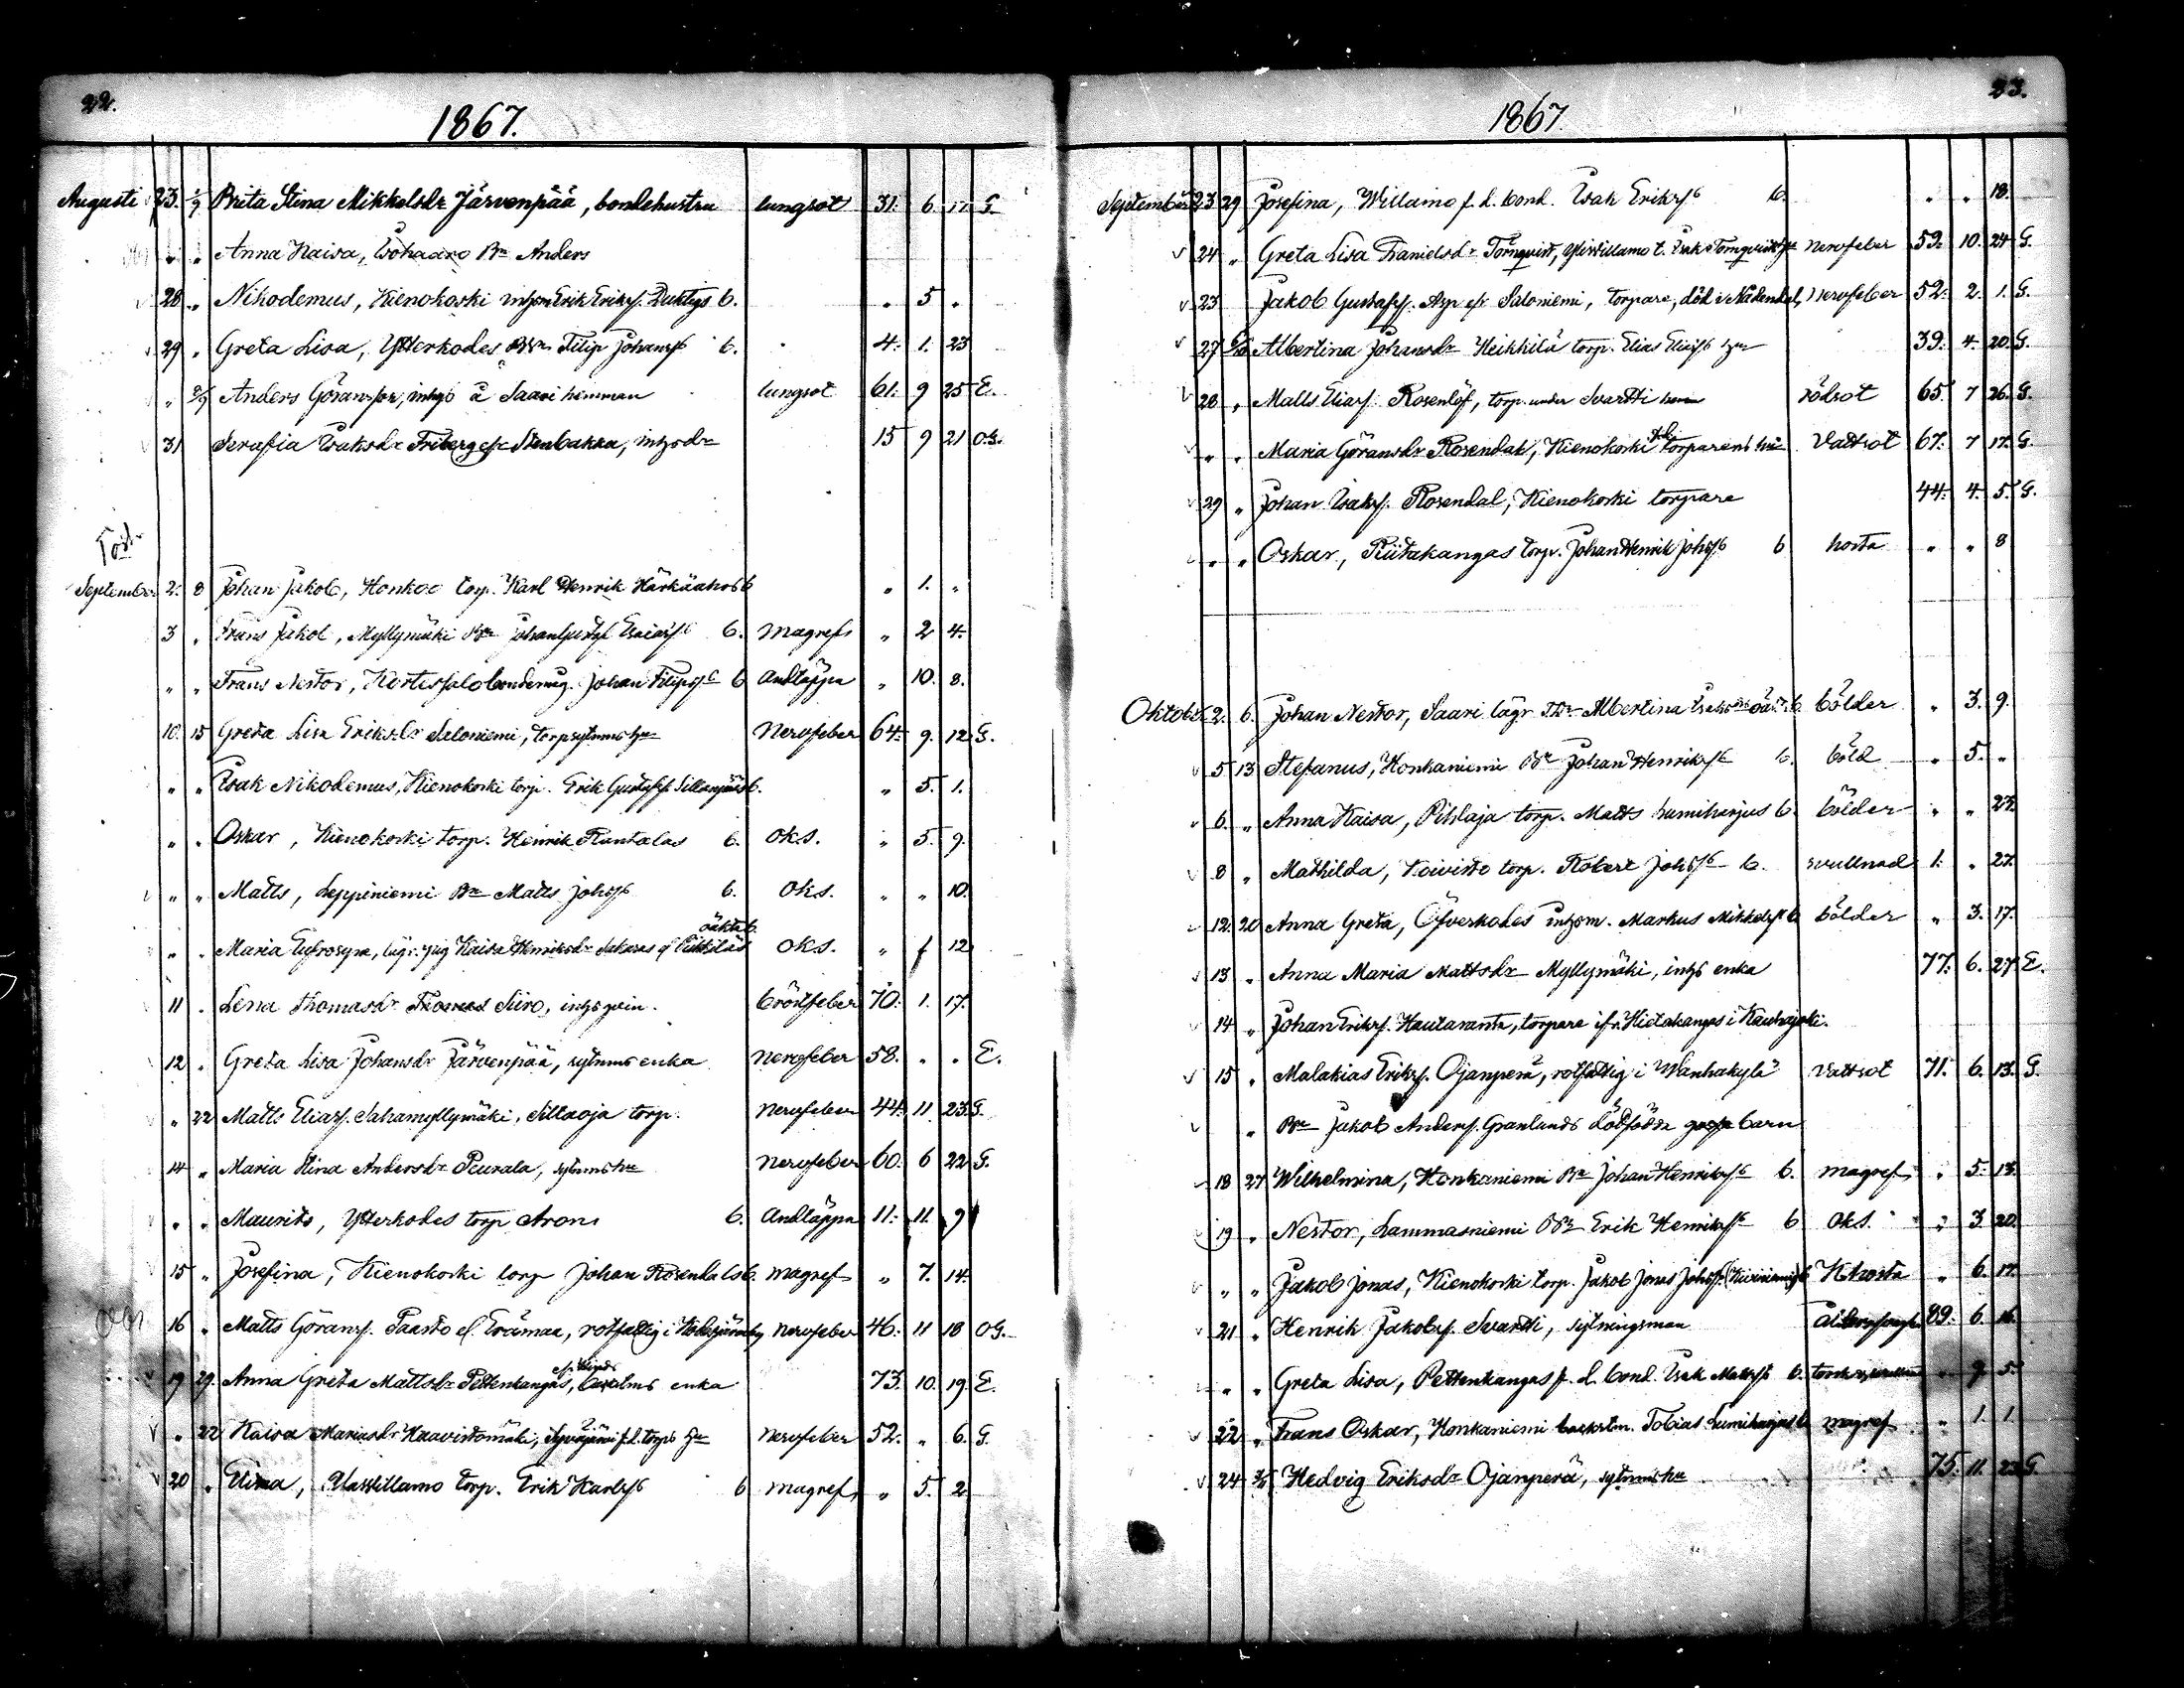 22.
1867.
Augusti 23. 1/9 Brita Stina Mikkelsdr Järvenpää, bondehustru lungsot 31. 6 17. G.
" " Anna Kaisa, Isohaaro Bn Anders
28 " Nikodemus, Kienokoski inhysm Erik Eriks. Duktigs b. " 5 "
29 " Greta Lisa, Ytterkodes Bn Filip Johanss b. 4. 1. 23
" 8/9 Anders Göransson, inhys å Saari hemman lungsot 61. 9 25 E.
31 Serafia Isaksdr Friberg el. Stenbakka, inhysdr 15 9 21 O.G.
September 2. 8 Johan Jakob, Honkoo torp. Karl Henrik Härkäahos b " 1. "
3 " Frans Jakob, Myllymäki Bn Johan Gustaf Esaias b. magref " 2 4.
" " Frans Nestor, Kortessalo bondemåg. Johan Filips b andtäppa " 10. 8.
10. 15 Greta Lisa Eriksdr Saloniemi, torpsytnms hu Nervfeber 64. 9. 12 G.
" " Isak Nikodemus, Kienokoski torp. Erik Gustafs. Sillanpääs b. " 5. 1.
" " Oskar, Kienokoski torp. Henrik Rantalas b. oks. " 5. 9.
" " Matts, Leppiniemi Bn Matts Johs b. oks. " " 10.
" " Maria Eufrosyna, lägr. pig Kaisa Henriksdr Sakaras el. Pihkiläs oäkta b. oks. " 1 12
11 " Lena Thomasdr Siiro, inhysqvin. bröstfeber 70. 1. 17.
12 " Greta Lisa Johansdr Järvenpää, sytnms enka nervfeber 58. " " E.
" 22 Matts Elias. Sahamyllymäki, Siltaoja torp. nervfeber 44. 11 23 G.
14 " Maria Stina Andersdr Peurala, sytnms hu nervfeber 60. 6 22 G.
" " Maurits, Ytterkodes torp Arons b. andtäppa 11. 11. 9
15 " Josefina, Kienokoski torp Johan Rosendals b. magref " 7. 14.
16 " Matts Görans. Paasto el. Erämaa, rotfattig i nervfeber 46. 11 18 O.G.
19 29. Anna Greta Mattsdr Pettenkangas, enka 73. 10. 19. E.
" 22 Kaisa Mariasdr Haavistomäki, f.d. torps hu nervfeber 52. " 6. G.
20 " Elina, Alawillamo torp. Erik Karls b magref " 5. 2
23.
1867.
September 23 29 Josefina, Willamo f.d. bond. Isak Eriks b. " " 18.
24 " Greta Lisa Danielsdr Törnqvist, Yliwillamo t. Isak Törnqvists hu nervfeber 59. 10. 24 G.
23 Jakob Gustafs. Asp el. Saloniemi, torpare, död i Nådendal, nervfeber 52. 2. 1. G.
27 6/10 Albertina Johansdr Heikkilä torp. Elias Elias hu 39. 4. 20. G.
28 " Matts Elias. Rosenlöf, torp. under Svartti hem rödsot 65. 7 26. G.
" " Maria Göransdr Rosendal, Kienokoski f.d. torparens hu Vattsot 67. 7 17. G.
29 " Johan Isaks. Rosendal, Kienokoski torpare 44. 4. 5. G.
" " Oskar, Riitakangas torp. Johan Henrik Johs b hosta " " 8
Oktober 2. 6. Johan Nestor, Saari lägr Albertina b. bölder " 3. 9.
5 13 Stefanus, Honkaniemi Bn Johan Henriks b. böld " 5. "
6. " Anna Kaisa, Pihlaja torp. Matts Lumiharjus b. bölder " " 27.
8 " Mathilda, Koivisto torp. Robert Johs b. svullnad 1. " 27.
12. 20 Anna Greta, Öfverkodes inhysm. Markus Mikkels b bölder " 3. 17.
13 " Anna Maria Mattsdr Myllymäki, inhs enka 77. 6. 27 E.
14 " Johan Eriks. Hautaranta, torpare ifr. Hietakangas i Kauhajoki.
15 " Malakias Eriks. Ojanperä, rotfattig i Wanhakylä Vattsot 71. 6. 13. G.
" Bn Jakob Anders. Granlunds dödfödda barn
18 27 Wilhelmina, Honkaniemi Bn Johan Henriks b. magref " 5. 13.
19 " Nestor, Lammasniemi Bn Erik Henriks b oks. " 3 20.
" " Jakob Jonas, Kienokoski torp. Jakob Jonas Johs. b K.hosta " 6. 17.
21 " Henrik Jakobs. Svartti, sytningsman 89. 6. 16.
" " Greta Lisa, Pettenkangas f.d. bond. Isak Matts b. torsk " 9. 5.
22 " Frans Oskar, Honkaniemi backstm. Tobias Lumiharjus b magref " 1. 1
24 Hedvig Eriksdr Ojanperä, sytnms hu 75. 11. 23 G.